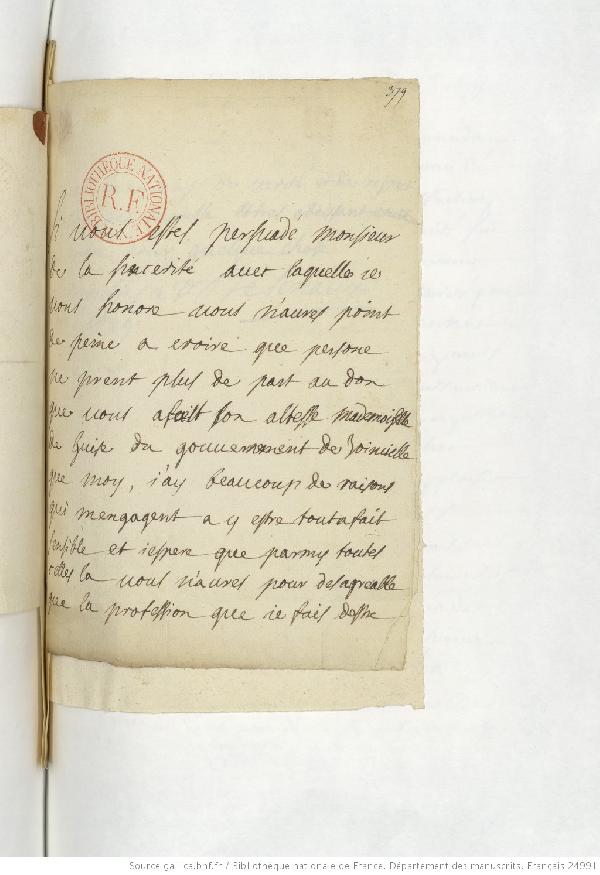 379
BIBLIOTHEQUE NATIONALE
R.F.
si vous estes persuade monsieur
de la sincerité avec laquelle ie
vous honore vous n'aures point
de peine a croire que persone
ne prent plus de part au don
que vous a fait son altesse mademoiselle
de Guise du gouvernement de Joinville
que moy, i'ay beaucoup de raisons
qui mengagent a y estre toutafait
sensible et iespere que parmy toutes
celles la vous n'aures pour desagreable
que la profession que ie fais destre
Source gallica.bnf.fr / Bibliothèque nationale de France. Département des manuscrits. Français 24991